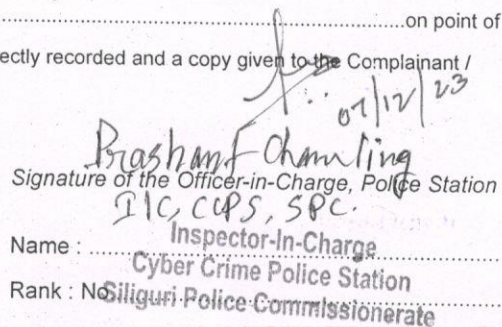 ....................on point of
ectly recorded and a copy given to the Complainant /
07/12/23
Prashant Chamling
Signature of the Officer-in-Charge, Police Station
I/C, CCPS, SPC.
Inspector-In-Charge
Name : ....................
Cyber Crime Police Station
Rank : No
Siliguri Police Commissionerate